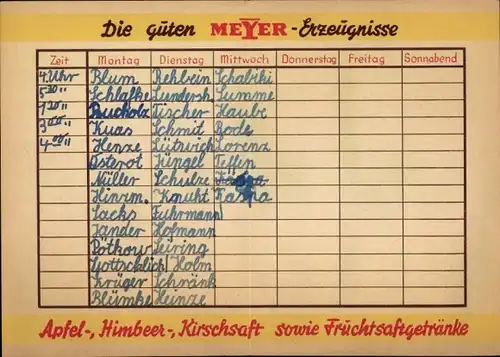 Die guten MEYER-Erzeugnisse
Zeit Montag Dienstag Mittwoch Donnerstag Freitag Sonnabend
4 Uhr Blum Rehbein Schabiki
5 30 " Schlafke Lundersh Lumme
1 20 " Bucholz Tischer Haube
3 00 " Kuas Schmit Bode
4 00 " Henze Lütwich Lorenz
Osterot Jüngel Teffen
Müller Schulze
Hinrm. Knuht Kaspa
Sacks Fuhrmann
Jander Hofmann
Pötkow Seiring
Gottschlich Holm
Krüger Schränk
Blümke Heinze
Apfel-, Himbeer-, Kirschsaft sowie Fruchtsaftgetränke